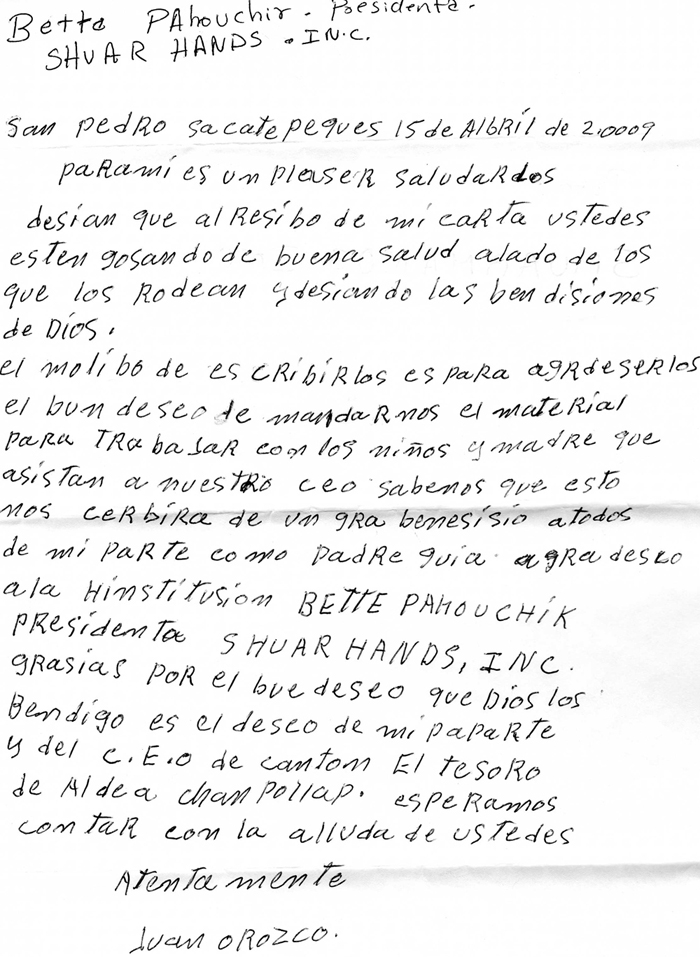 Bette PAhouchir. Poesidenta.
SHUAR HANDS. INC.
San Pedro sacatepeques 15 de AlbRil de 2,0009
paRami es un pleuseR saludaRdos
desian que al Resibo de mi caRta ustedes
esten gosando de buena salud alado de los
que los Rodean y desiando las bendisiones
de Dios.
el molibo de es cRibiRlos es paRa agRdeseRlos
el bun deseo de mandaRnos el mateRial
paRa TRabaJaR con los niños y madRe que
asistan a nuestRo ceo sabenos que esto
nos ceRbiRa de un gRa benesisio atodos
de mi paRte como padRe guia agRadesco
ala Hinstitusion BETTE PAHOUCHIK
PResidenta SHUAR HANDS, INC.
gRasias poR el bue deseo que Dios los
Bendigo es el deseo de mi papaRte
y del C.E.O de cantom El tesoRo
de Aldea chanpollap. espeRamos
contaR con la alluda de ustedes
Atentamente
Juan OROZCO.